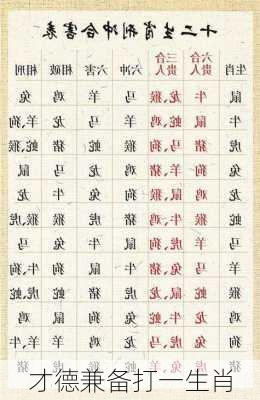 十二生肖刑冲合害表
生肖 六合贵人 三合贵人 六冲 六害 相破 相刑
鼠 牛 龙,猴 马 羊 鸡 兔
牛 鼠 蛇,鸡 羊 马 龙 羊,狗
虎 猪 马,狗 猴 蛇 猪 蛇,猴
兔 狗 羊,猪 鸡 龙 马 鼠
龙 鸡 鼠,猴 狗 兔 牛 龙
蛇 猴 牛,鸡 猪 虎 猴 猴,虎
马 羊 虎,狗 鼠 牛 兔 马
羊 马 兔,猪 牛 鼠 狗 牛,狗
猴 蛇 鼠,龙 虎 猪 蛇 蛇,虎
鸡 龙 牛,蛇 兔 狗 鼠 鸡
狗 兔 虎,马 龙 鸡 羊 牛,羊
猪 虎 兔,羊 蛇 猴 虎 猪
才德兼备打一生肖